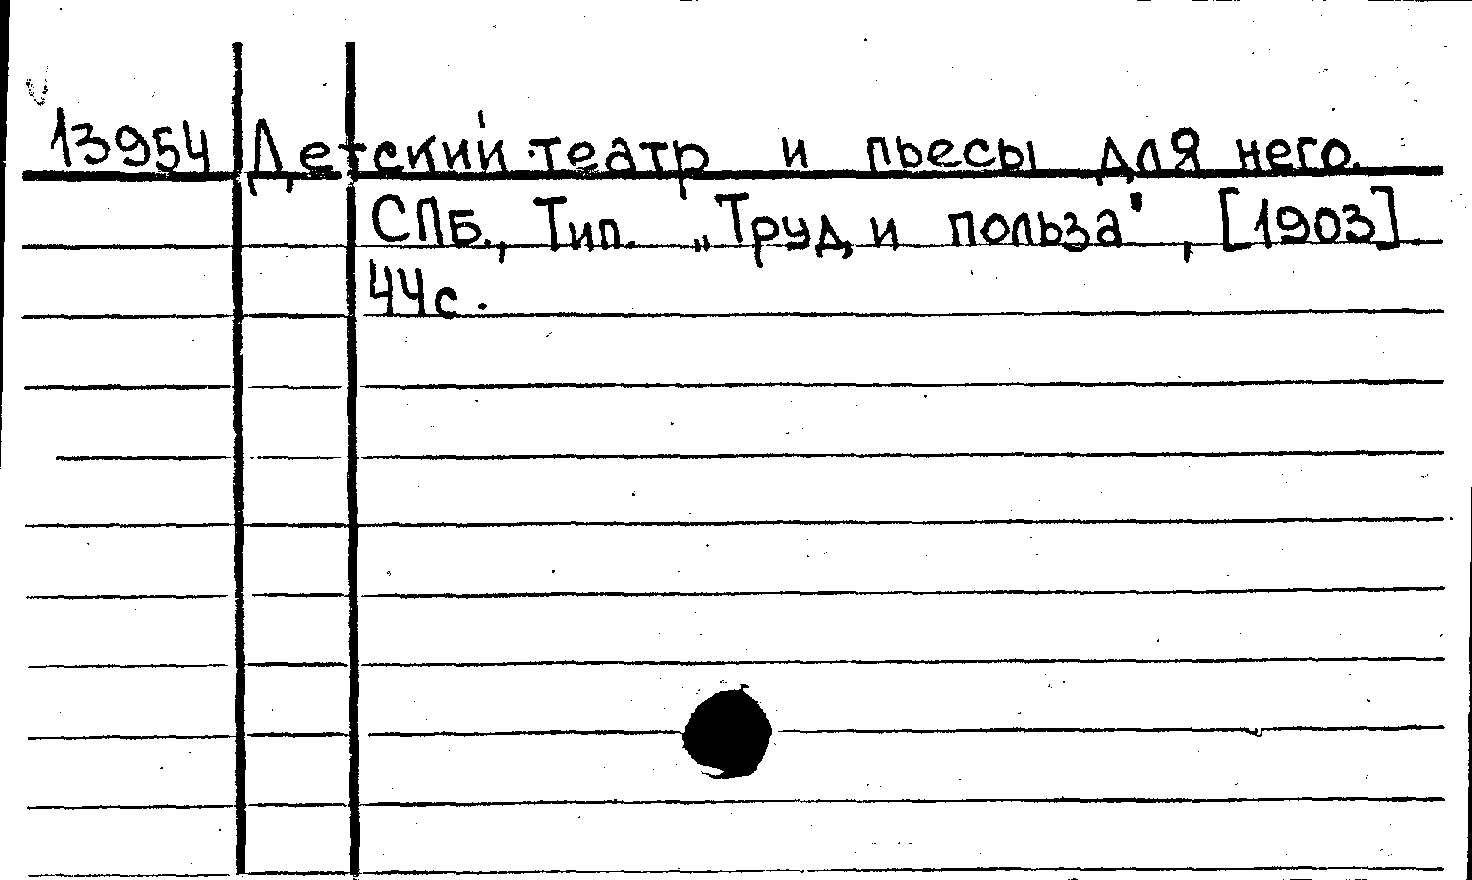 13954 Детский театр и пьесы для него.
СПБ., Тип. „Труд и польза", [1903]
44с.